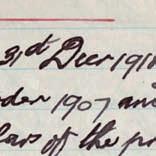 31st Decr 191
der 1907 and
lars of the pr